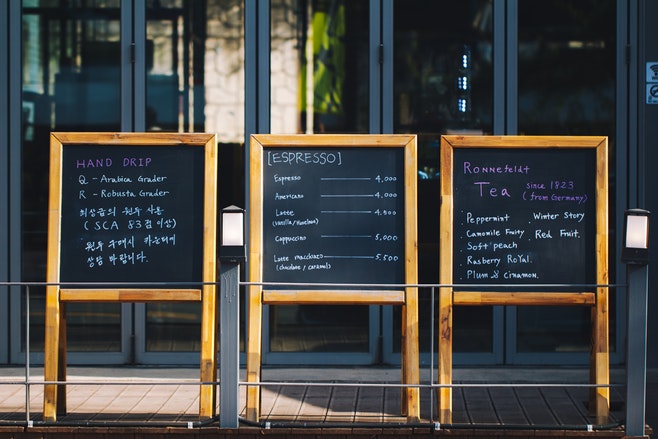 HAND DRIP
Q - Arabica Grader
R - Robusta Grader
최상급의 원두 사용
( SCA 83점 이상)
원두 구매시 카운터에
상담 바랍니다.
[ESPRESSO]
Espresso 4,000
Americano 4,000
Latte 4,500
(vanilla / Hazelnut)
Cappuccino 5,000
Latte macchiato 5,500
(chocolate / caramel)
Ronnefeldt
Tea since 1823
(from Germany)
Peppermint
Camomile Fruity
Soft peach
Rasberry Royal.
Plum & cinnamon.
Winter Story
Red Fruit.